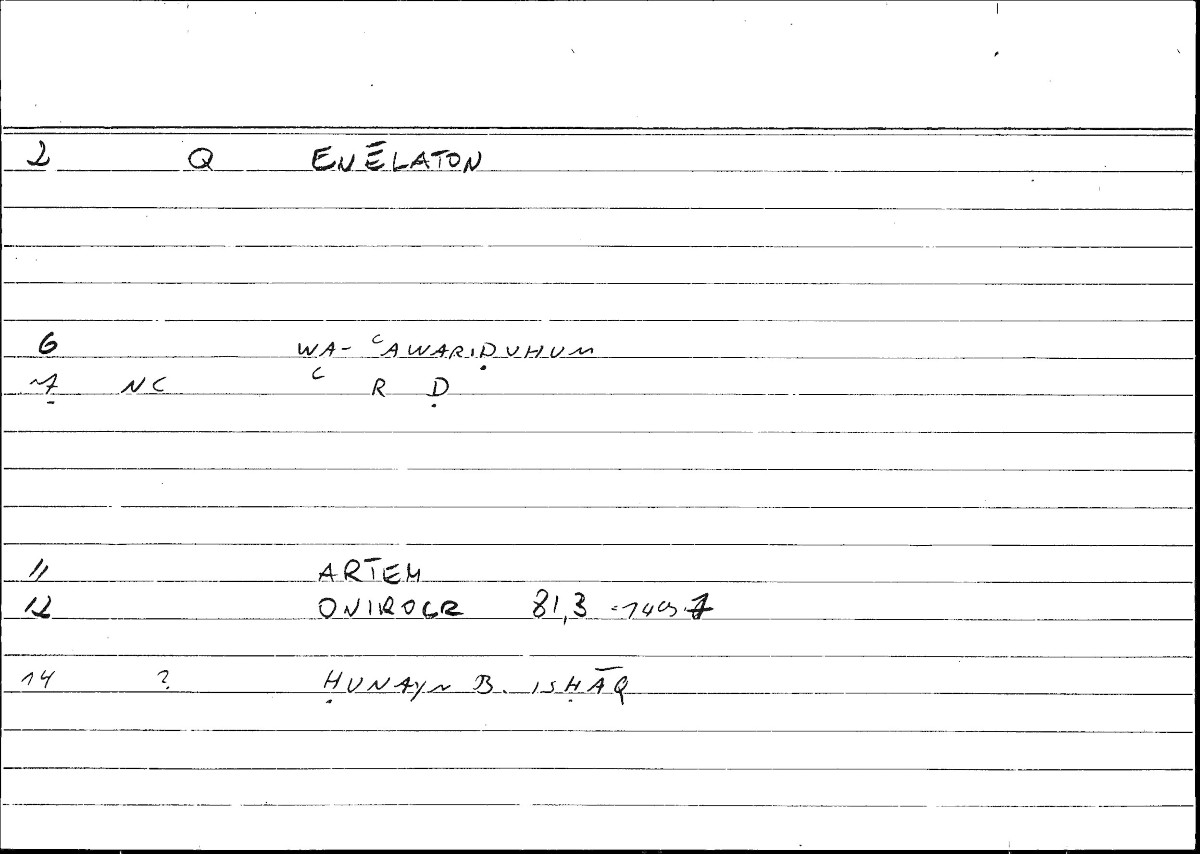 2 Q ENĒLATON
6 WA- ʿAWARIḌUHUM
7 NC ʿ R Ḍ
11 ARTEM
12 ONIROCR 81,3
14 ? ḤUNAYN B. ISḤĀQ